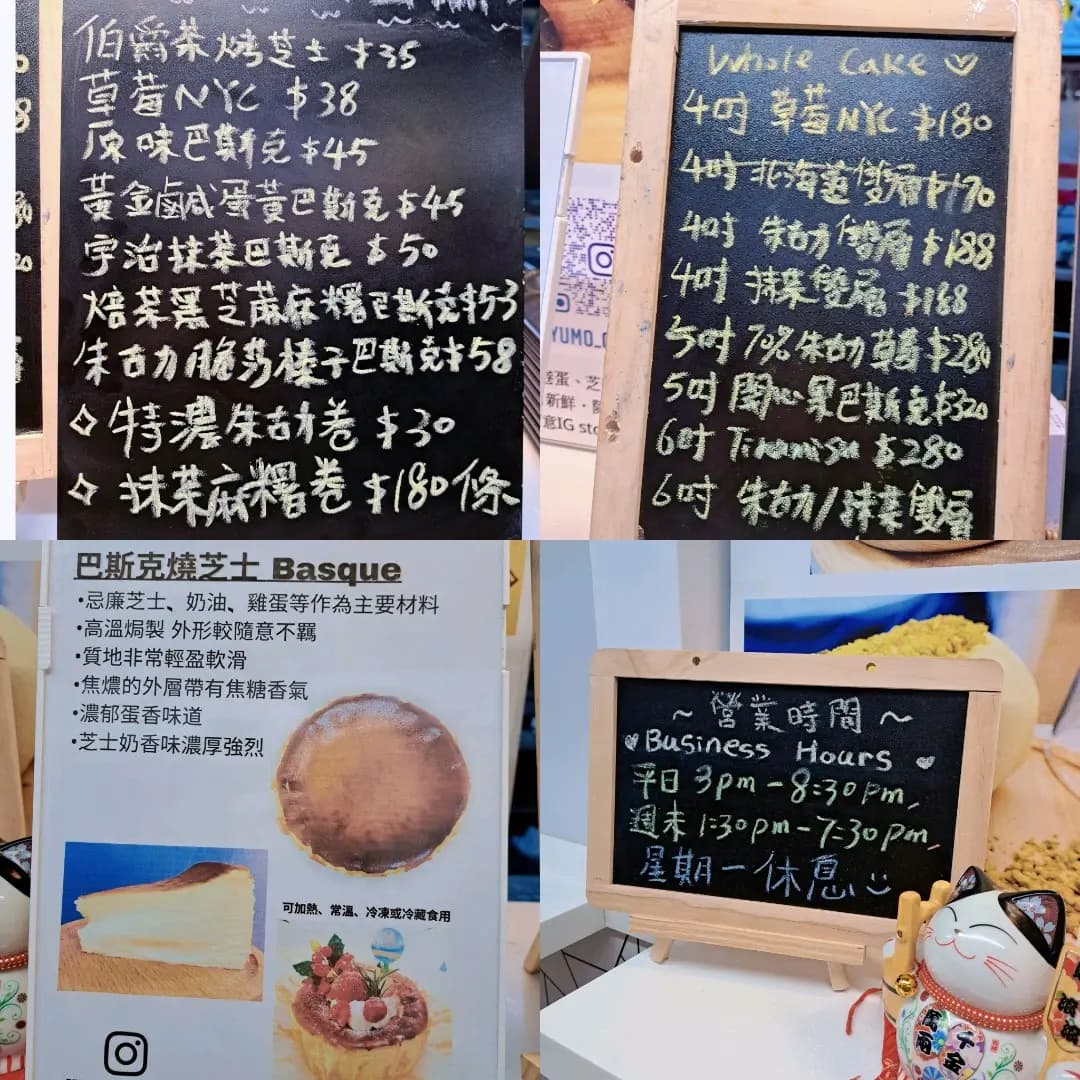 伯爵茶烤芝士 $35
草莓NYC $38
原味巴斯克 $45
黃金鹹蛋黃巴斯克 $45
宇治抹茶巴斯克 $50
焙茶黑芝蔴麻糬巴斯克 $53
朱古力脆芴榛子巴斯克 $58
特濃朱古力卷 $30
抹茶麻糬卷 $180條
Whole Cake
4吋 草莓NYC $180
4吋 北海道雙層 $170
4吋 朱古力雙層 $188
4吋 抹茶雙層 $168
5吋 70%朱古力草莓 $280
5吋 開心果巴斯克 $320
6吋 Tiramisu $280
6吋 朱古力/抹茶雙層
YUMO_
新鮮·
意IG sto
巴斯克燒芝士 Basque
•忌廉芝士、奶油、雞蛋等作為主要材料
•高溫焗製 外形較隨意不羈
•質地非常輕盈軟滑
•焦燶的外層帶有焦糖香氣
•濃郁蛋香味道
•芝士奶香味濃厚強烈
可加熱、常溫、冷凍或冷藏食用
~ 營業時間 ~
Business Hours
平日 3pm - 8:30pm
週末 1:30pm - 7:30pm
星期一休息
千金